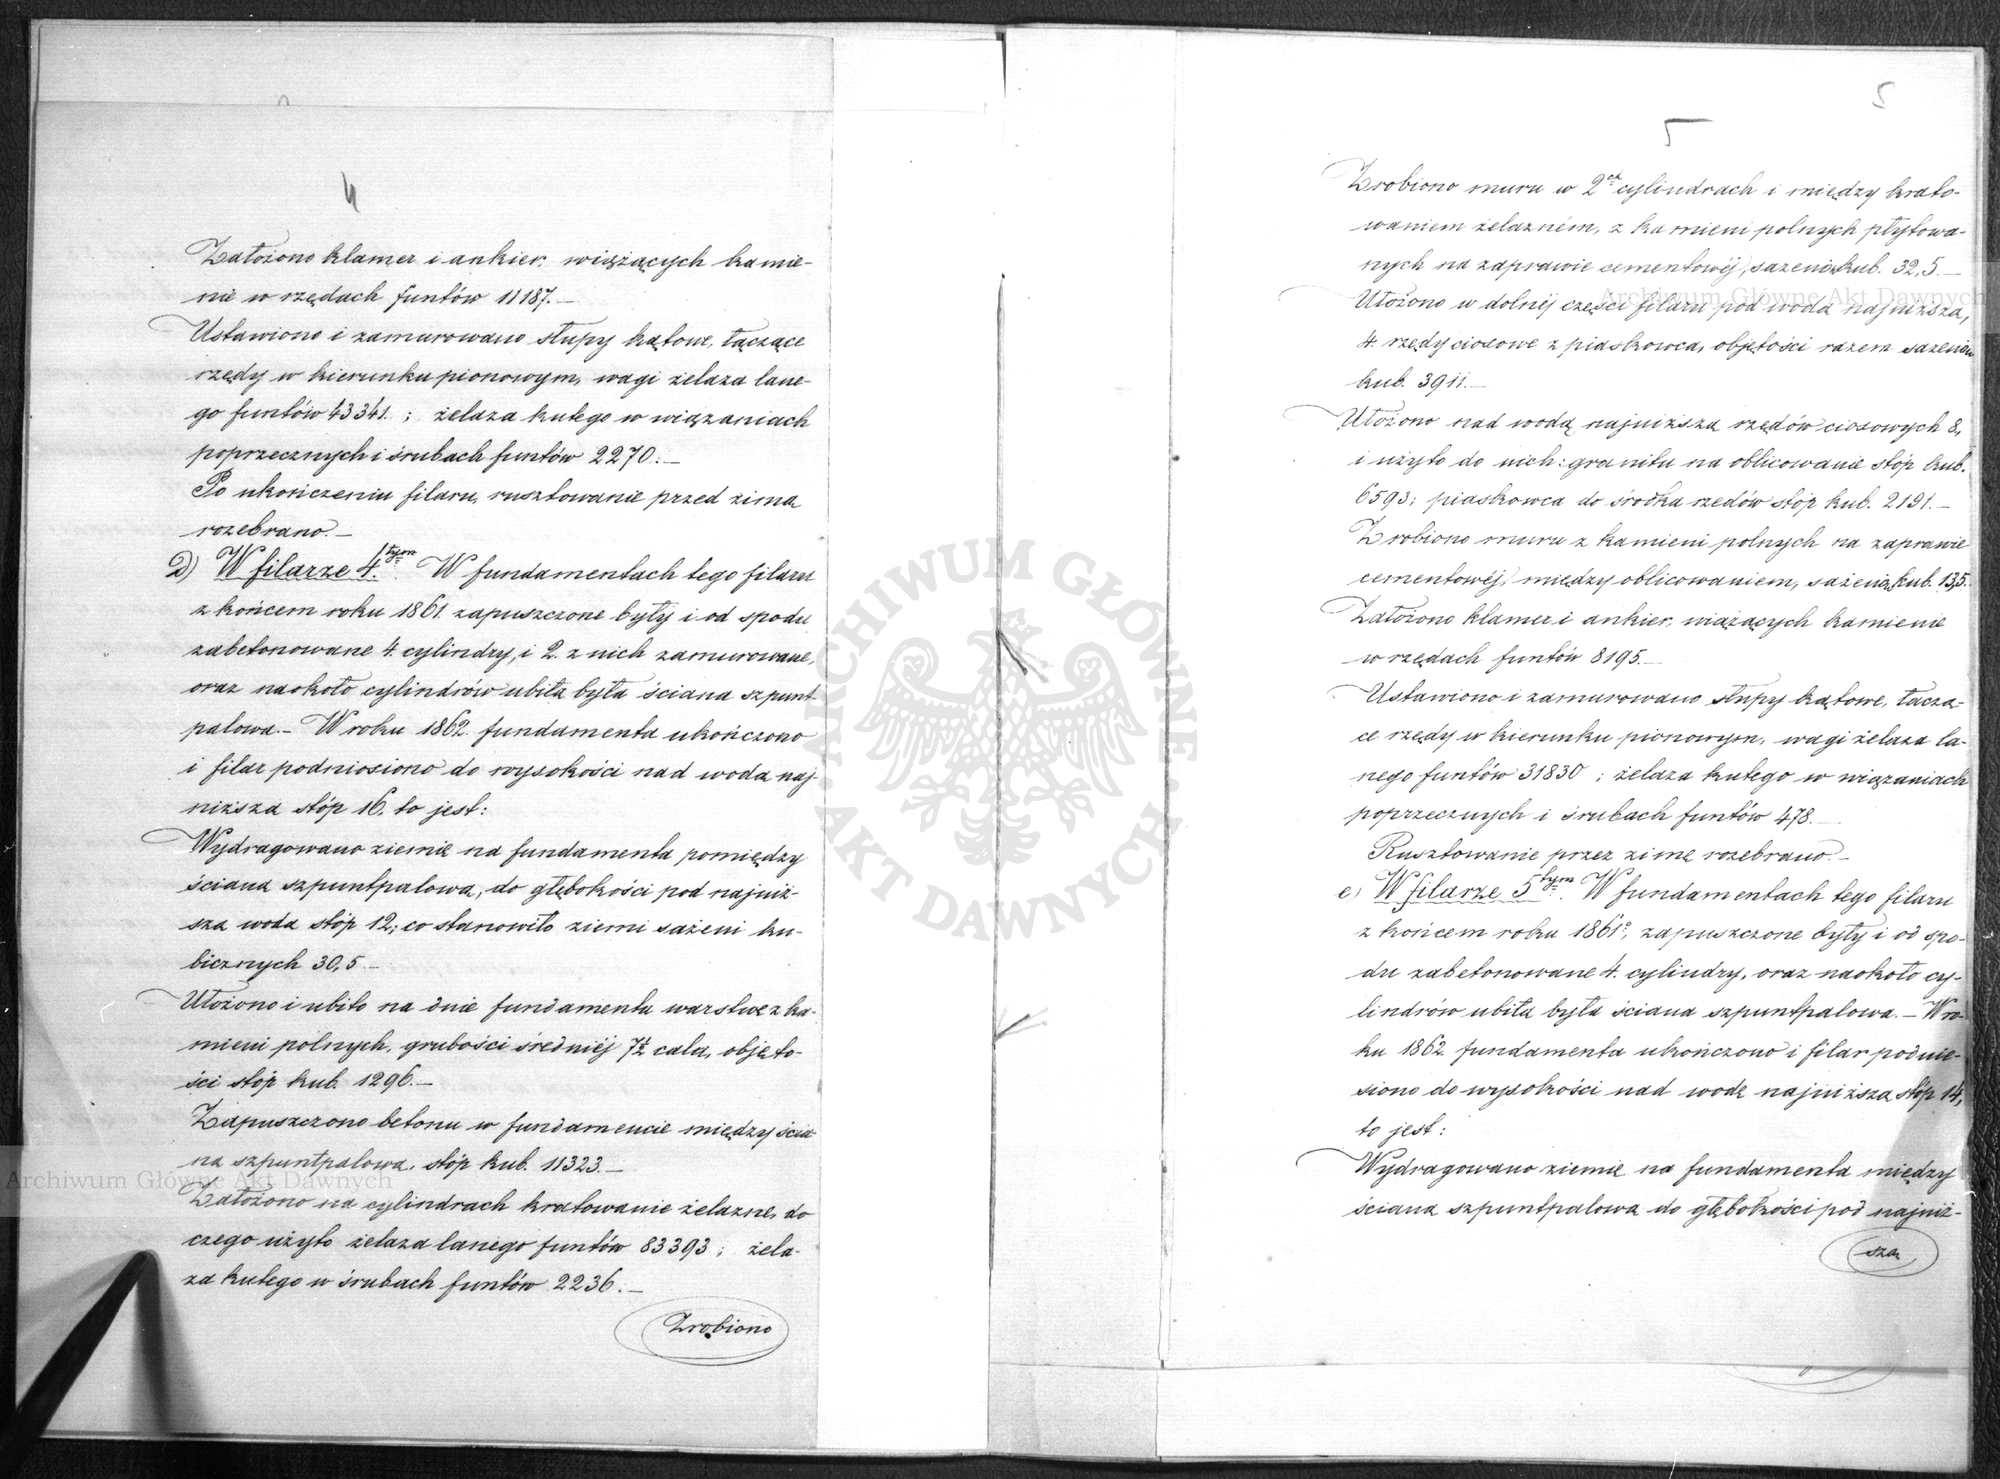 4
Założono klamer i ankier, wiążących kamie-
nie w rzędach funtów 11187.—
Ustawiono i zamurowano słupy kątowe, łączące
rzędy w kierunku pionowym, wagi żelaza lane-
go funtów 43341.; żelaza kutego w wiązaniach
poprzecznych i śrubach funtów 2270.—
Po ukończeniu filaru, rusztowanie przed zimą
rozebrano.—
d) W filarze 4.tym. W fundamentach tego filaru
z końcem roku 1861. zapuszczone były i od spodu
zabetonowane 4. cylindry, i 2. z nich zamurowane,
oraz naokoło cylindrów ubita była ściana szpunt-
palowa.— W roku 1862. fundamenta ukończono
i filar podniosiono do wysokości nad wodą naj
niższą stóp 16, to jest:
Wydragowano ziemię na fundamenta pomiędzy
ścianą szpuntpalową, do głębokości pod najniż-
szą wodą stóp 12; co stanowiło ziemi sażeni ku-
bicznych 30,5.—
Ułożono i ubito na dnie fundamentu warstwę z ka-
mieni polnych, grubości średniéj 7½ cala, objęto-
ści stóp kub. 1296.—
Zapuszczono betonu w fundamencie między ścia-
ną szpuntpalową, stóp kub. 11323.—
Założono na cylindrach kratowanie żelazne, do
czego użyto żelaza lanego funtów 83393; żela-
za kutego w śrubach funtów 2236.—
Zrobiono
5
5
Zrobiono muru w 2ch cylindrach i między krato-
waniem żelazném, z kamieni polnych płytowa-
nych na zaprawie cementowéj, sażeni kub. 32,5.—
Ułożono w dolnéj części filaru pod wodą najniższą,
4. rzędy ciosowe z piaskowca, objętości razem sażeni
kub. 3911.—
Ułożono nad wodą najniższą rzędów ciosowych 8,
i użyto do nich: granitu na oblicowanie stóp kub.
6593; piaskowca do środka rzędów stóp kub. 2191.—
Zrobiono muru z kamieni polnych na zaprawie
cementowéj, między oblicowaniem, sażeni kub. 13,5.
Założono klamer i ankier, wiążących kamienie
w rzędach funtów 8195.—
Ustawiono i zamurowano słupy kątowe, łączą-
ce rzędy w kierunku pionowym, wagi żelaza la-
nego funtów 31830; żelaza kutego w wiązaniach
poprzecznych i śrubach funtów 478.—
Rusztowanie przez zimę rozebrano.—
e) W filarze 5tym. W fundamentach tego filaru
z końcem roku 1861º, zapuszczone były i od spo-
du zabetonowane 4. cylindry, oraz naokoło cy-
lindrów ubita była ściana szpuntpalowa.— W ro-
ku 1862. fundamenta ukończono i filar podnie-
siono do wysokości nad wodę najniższą stóp 14,
to jest:
Wydragowano ziemię na fundamenta między
ścianą szpuntpalową do głębokości pod najniż-
szą
Archiwum Główne Akt Dawnych
Archiwum Główne Akt Dawnych
ARCHIWUM GŁÓWNE AKT DAWNYCH